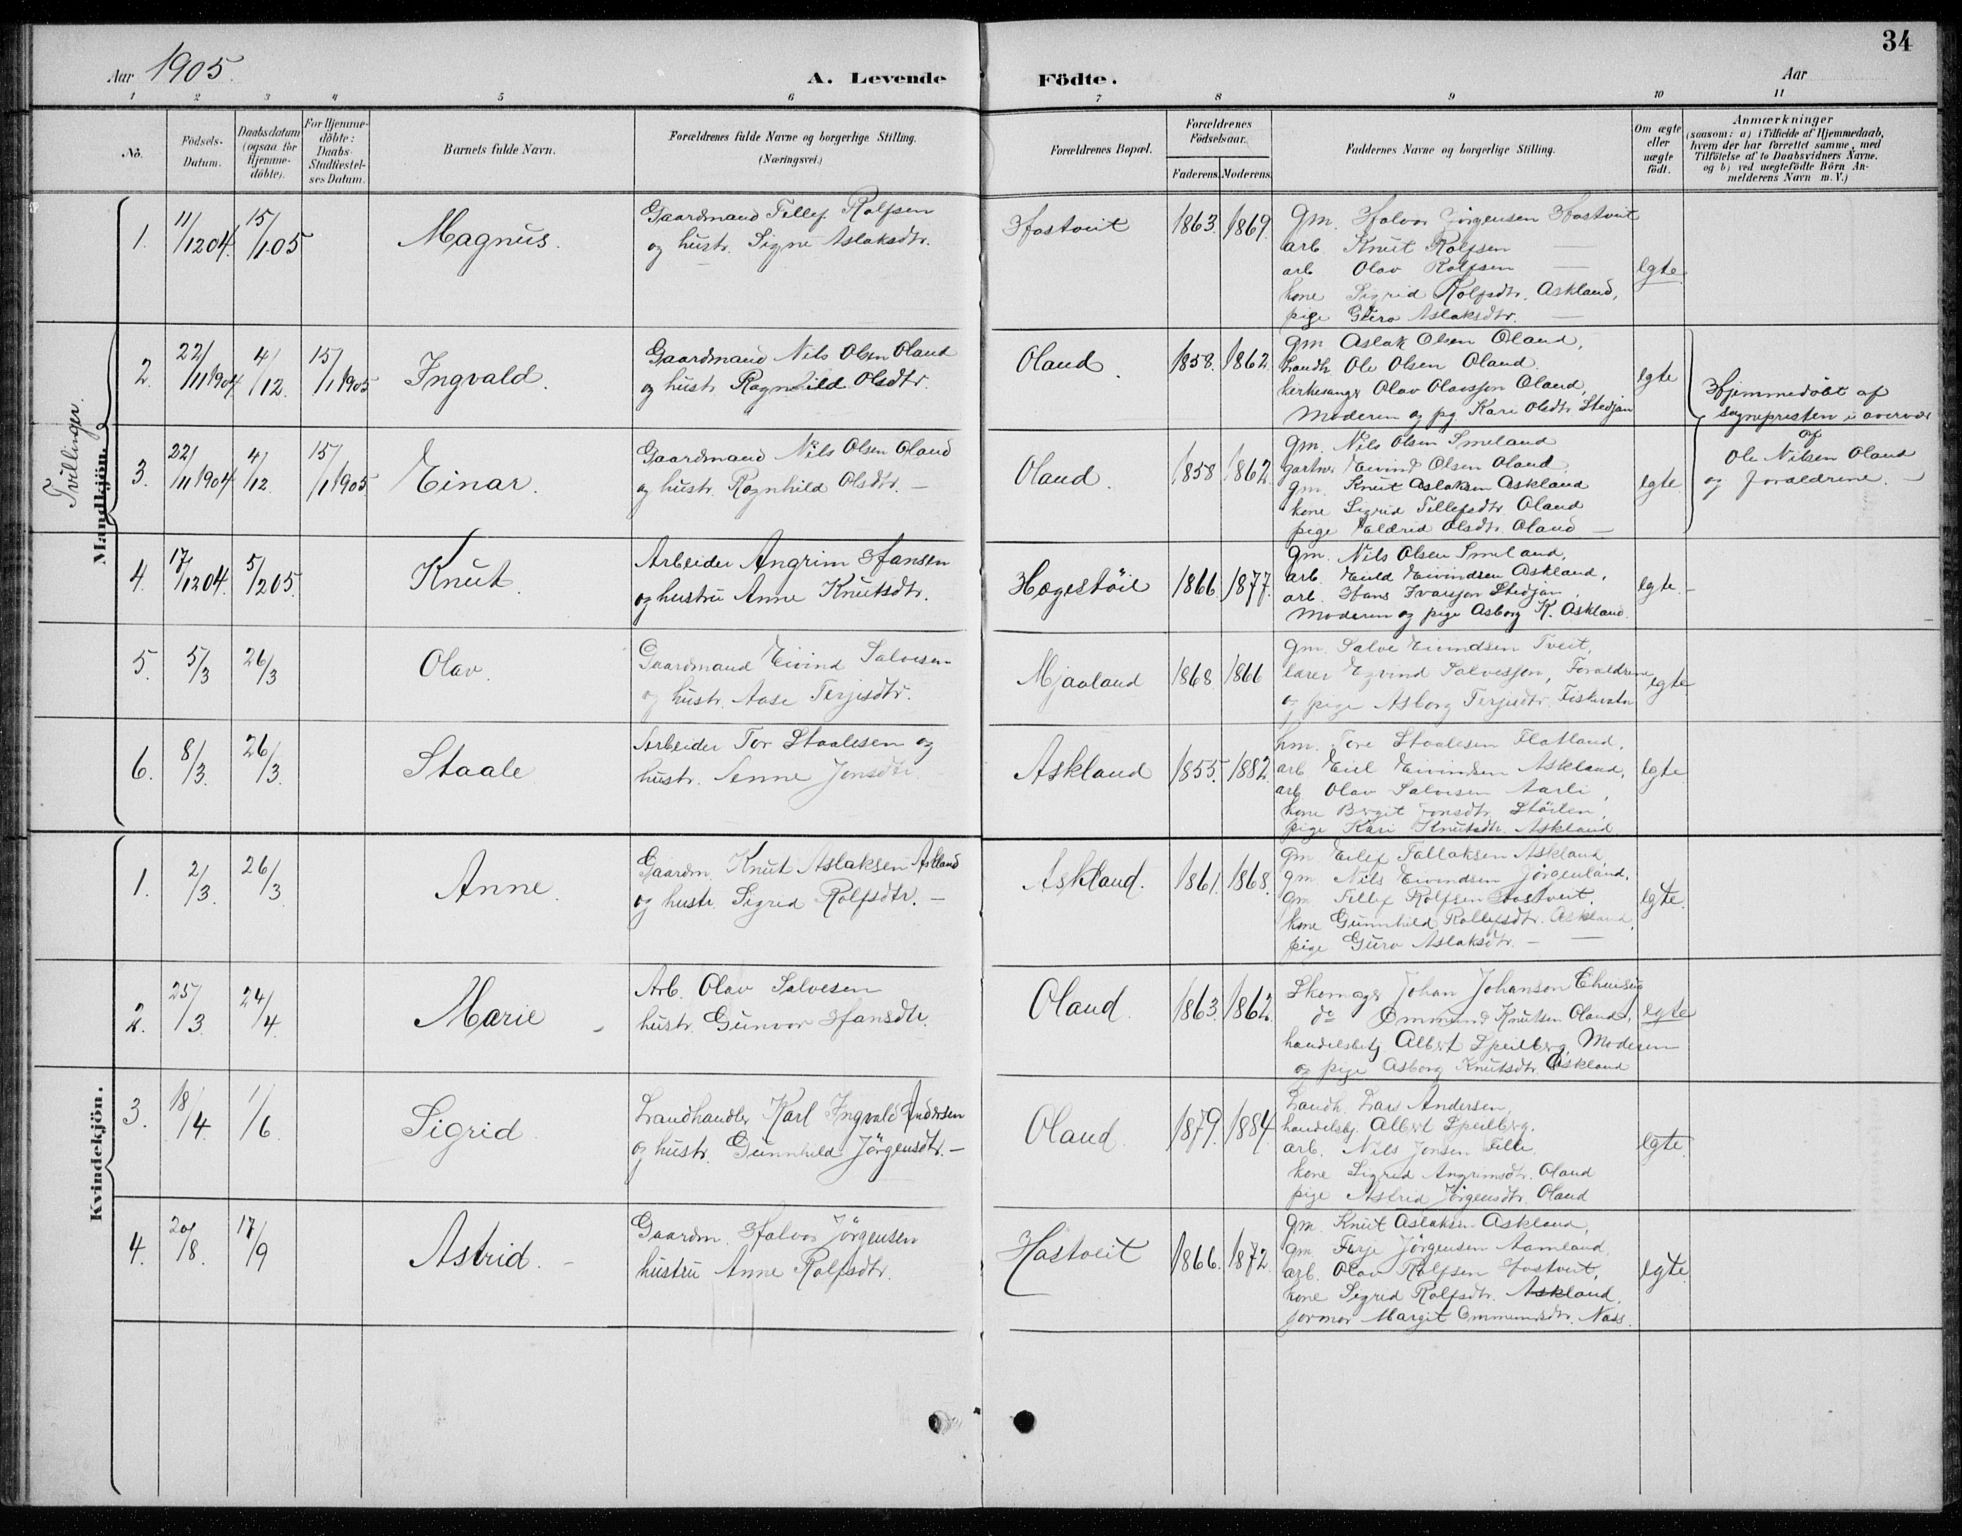 34
Aar 1905.
A. Levende Födte.
Aar
1 2 3 4 5 6 7 8 9 10 11
No.
Födsels-Datum.
Daabsdatum (ogsaa for Hjemme-döbte).
For Hjemme-döbte: Daabs-Stadfæstel-ses Datum.
Barnets fulde Navn.
Forældrenes fulde Navne og borgerlige Stilling. (Næringsvei.)
Forældrenes Bopæl.
Forældrenes Födselsaar.
Faderens. Moderens.
Faddernes Navne og borgerlige Stilling.
Om ægte eller uægte födt.
Anmærkninger
(saasom: a) i Tilfælde af Hjemmedaab, hvem der har forrettet samme, med Tilföielse af to Daabsvidners Navne, og b) ved uægtefödte Börn An-melderens Navn m. V.)
Mandkjön.
Tvillinger.
1. 11/12 04. 15/1 05 Magnus.
Gaardmand Tellef Rolfsen
og hustr. Signe Aslaksdtr.
Hostveit 1863. 1869.
gm. Halvor Jörgensen Hostveit
arb. Knut Rolfsen —
arb Olav Rolfsen —
kone Sigrid Rolfsdtr. Askland,
pige Guro Aslaksdtr. —
egte
2. 22/11 1904 4/12. 15/1 1905 Ingvald.
Gaardmand Nils Olsen Oland
og hustr Ragnhild Olsdtr.
Oland. 1858. 1862.
gm Aslak Olsen Oland,
landh Ole Olsen Oland.
kirkesanger Olav Olavsson Oland,
Moderen og pg Kari Olsdtr. Stedjan
egte
Hjemmedöbt af
sognepresten i overvær
af
Ole Nilsen Oland
og forældrene. —
3. 22/11 1904 4/12 15/1 1905 Einar.
Gaardmand Nils Olsen Oland
og hustr. Ragnhild Olsdtr. —
Oland. 1858 1862
gm. Nils Olsen Smeland
gartner Eivind Olsen Oland,
gm. Knut Aslaksen Askland
kone Sigrid Tellefsdtr. Oland
pige Eldrid Olsdtr. Oland —
egte
4. 17/12 04. 5/2 05. Knut.
Arbeider Angrim Hansen
og hustru Anne Knutsdtr.
Hægestöil 1866. 1877.
gm. Nils Olsen Smeland,
arb. Eivindsen Askland,
arb. Hans Ivarsson Stedjan,
Moderen og pige Asborg K. Askland.
egte. —
5. 5/3 26/3 Olav.
Gaardmand Eivind Salvesen
og hustr. Aase Terjesdtr.
Mjaaland 1868. 1866
gm. Salve Eivindsen Tveit,
lærer Eyvind Salvesson, Forældrene
og pige Asborg Terjesdtr.
egte
6. 8/3. 26/3. Staale
Arbeider Tor Staalesen og
hustr. Anne Jonsdtr.
Askland 1855. 1882.
hm. Tore Staalesen Flatland,
arb Eivindsen Askland,
arb Olav Salvesen Aarli,
kone Birgit Jonsdtr. Stöilen,
pige Kari Knutsdtr. Askland
egte
Kvindekjön.
1. 2/3. 26/3 Anne.
Gaardm. Knut Aslaksen Askland
og hustr. Sigrid Rolfsdtr. —
Askland. 1861. 1868.
gm. Eilef Tallaksen Askland,
gm. Nils Eivindsen Jörgenland,
gm Tellef Rolfsen Hostveit,
kone Gunnhild Rollefsdtr. Askland,
pige Guro Aslaksdtr. — —
egte.
2. 25/3. 24/4. Marie
Arb. Olav Salvesen
hustr. Gunvor Hansdtr.
Oland. 1863. 1862.
Skomager Johan Johanson
do Ommund Knutsen Oland,
handelsbetj Albert Speilberg, Moderen
og pige Asborg Knutsdtr. Askland
egte
3. 18/4. 1/6. Sigrid.
Landhandler Karl Ingvald Andersen
og hustr. Gunnhild Jörgensdtr. —
Oland. 1879. 1884.
Landh. Lars Andersen,
handelsbj. Albert Speilberg.
arb. Nils Jonsen Felle.
kone Sigrid Angrimsdtr. Oland
pige Astrid Jörgensdtr. Oland
egte.
4. 20/8. 17/9 Astrid. —
Gaardm. Halvor Jörgensen
hustru Anne Rolfsdtr.
Hostveit 1866. 1872.
gm. Knut Aslaksen Askland,
gm. Terje Jörgensen Aamland,
arb. Olav Rolfsen Hostveit,
kone Sigrid Rolfsdtr. Askland,
formor Margit Ommundsdtr. Næss.
egte.